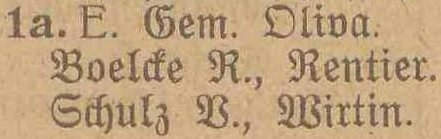 1a. E. Gem. Oliva.
Boelcke R., Rentier.
Schulz V., Wirtin.